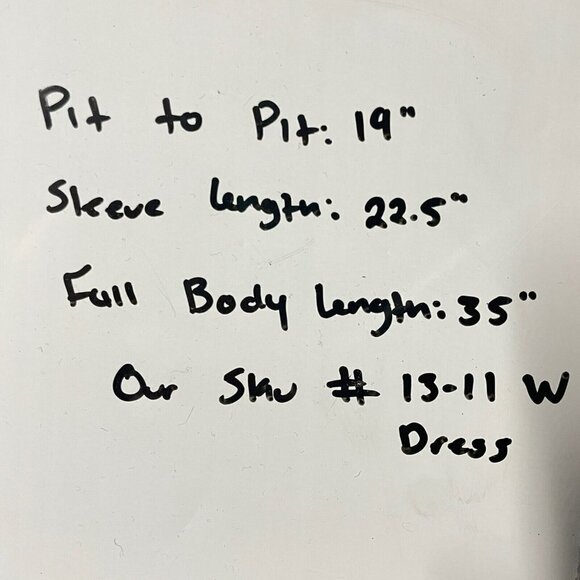 Pit to Pit: 19"
Sleeve Length: 22.5"
Full Body Length: 35"
Our Sku # 13-11 W
Dress